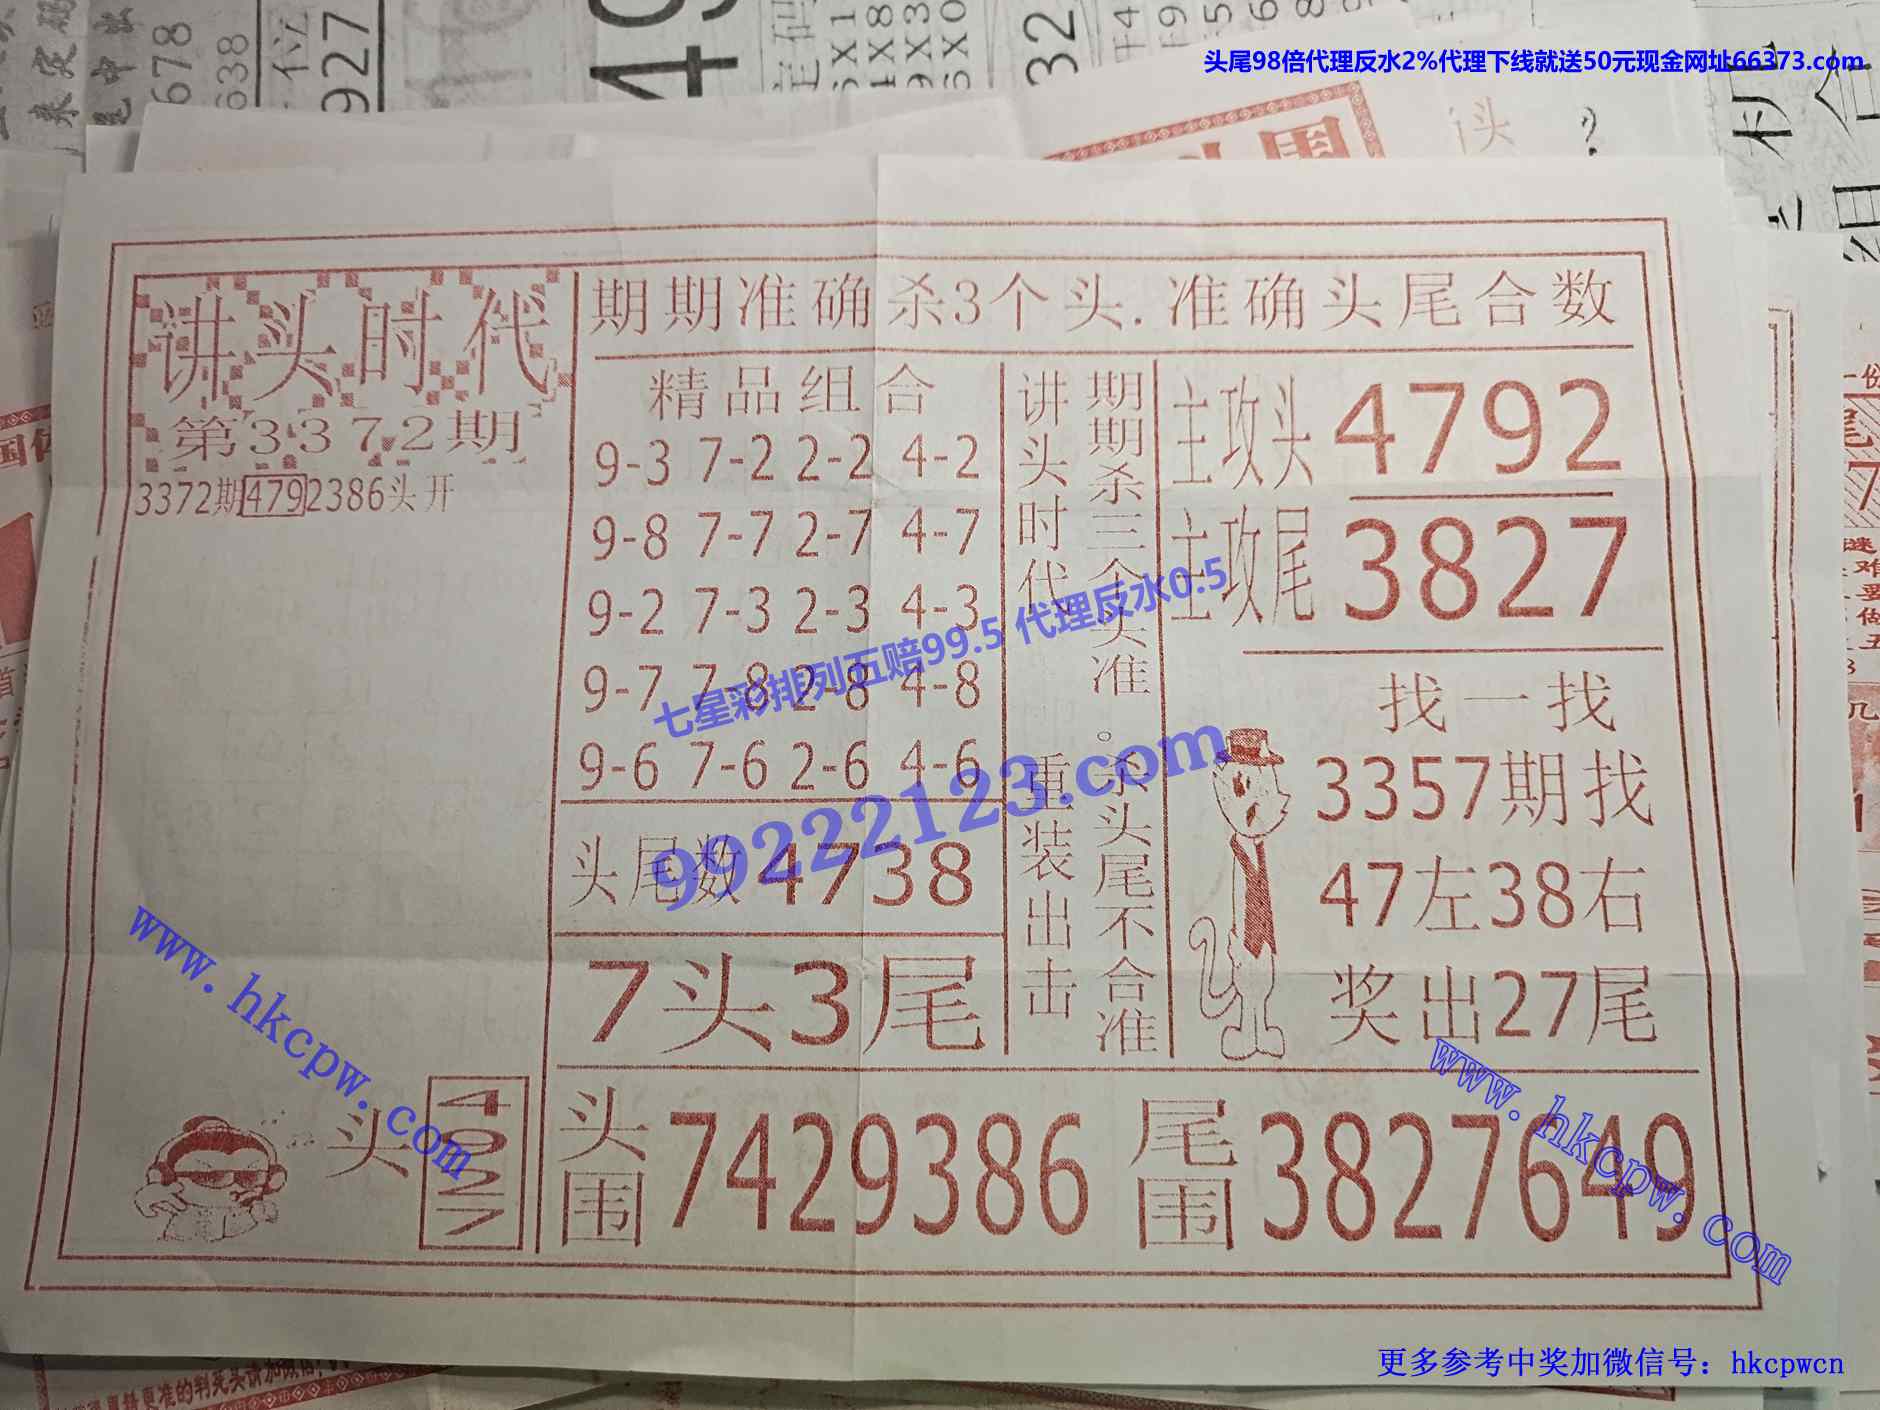 头尾98倍代理反水2%代理下线就送50元现金网址66373.com
678
638
927
32
讲头时代
第3372期
3372期4792386头开
期期准确杀3个头.准确头尾合数
精品组合
9-3 7-2 2-2 4-2
9-8 7-7 2-7 4-7
9-2 7-3 2-3 4-3
9-7 7-8 2-8 4-8
9-6 7-6 2-6 4-6
头尾数4738
7头3尾
期期杀三个头准。杀头尾不合准
讲头时代 重装出击
主攻头 4792
主攻尾 3827
找一找
3357期找
47左38右
奖出27尾
七星彩排列五赔99.5 代理反水0.5
99222123.com
www.hkcpw.com
www.hkcpw.com
头
头围 7429386
尾围 3827649
更多参考中奖加微信号：hkcpwcn